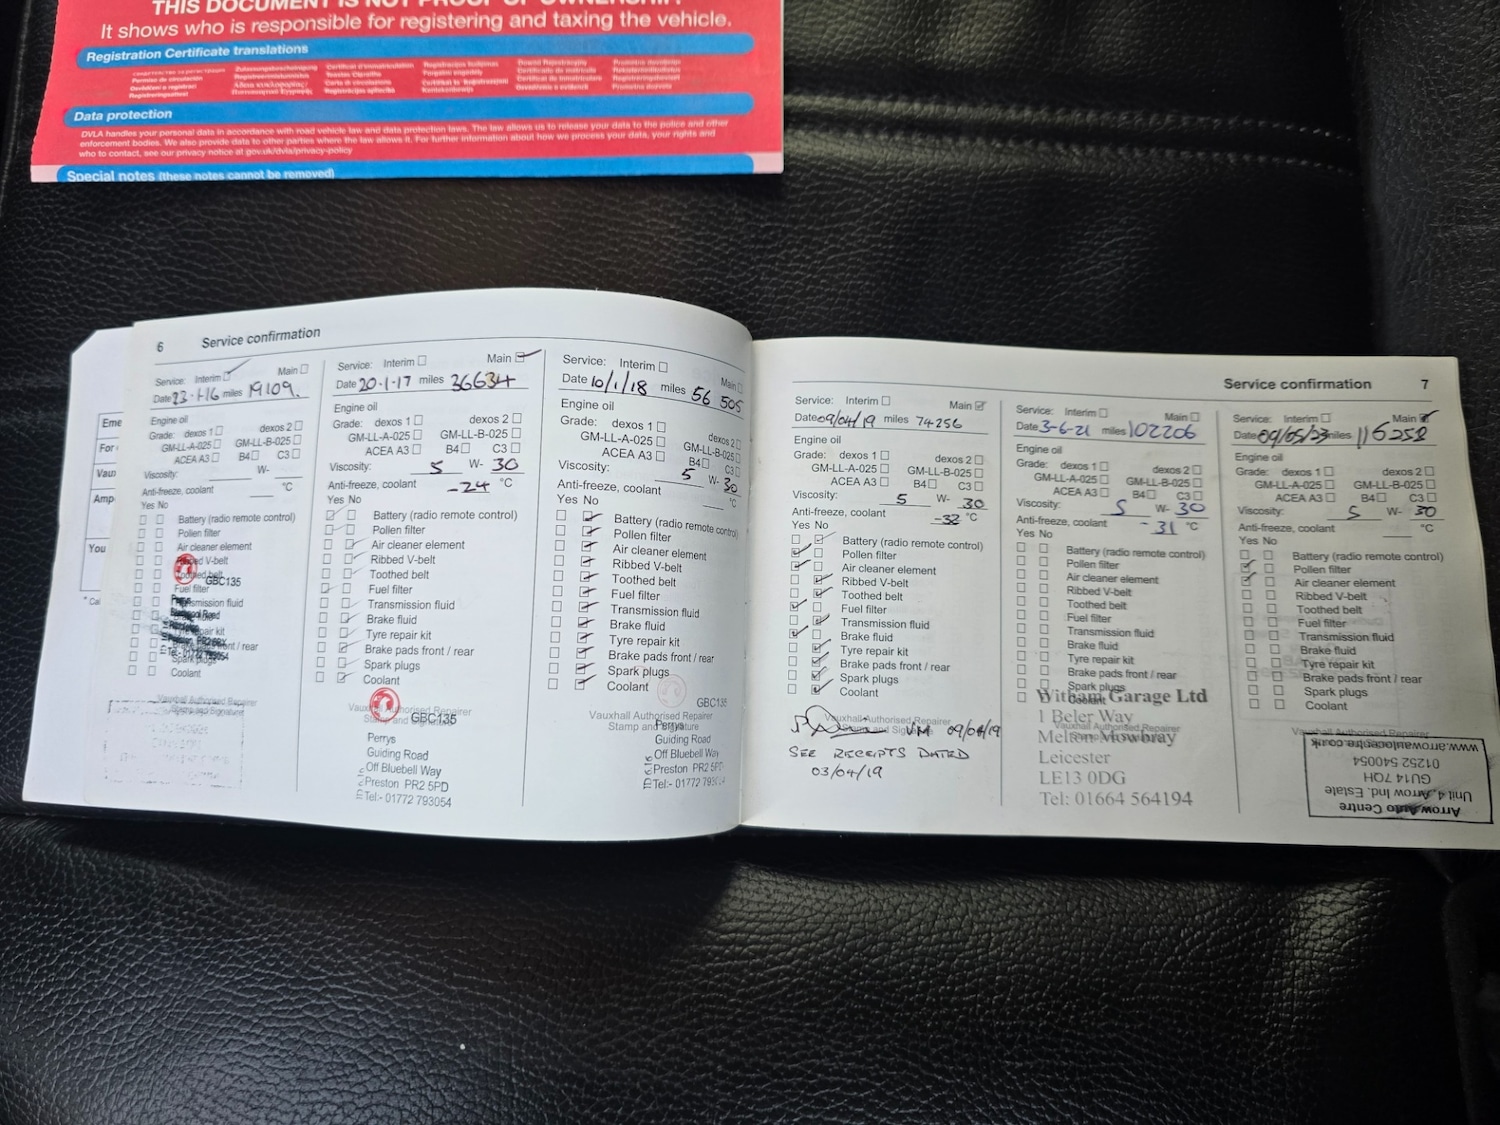 THIS DOCUMENT IS NOT PROOF OF OWNERSHIP.
It shows who is responsible for registering and taxing the vehicle.
Registration Certificate translations
Permiso de circulación
Data protection
DVLA handles your personal data in accordance with road vehicle law and data protection laws. The law allows us to release your data to the police and other
enforcement bodies. We also provide data to other parties where the law allows it. For further information about how we process your data, your rights and
who to contact, see our privacy notice at gov.uk/dvla/privacy-policy
Special notes (these notes cannot be removed)
Eme
For
Vaux
Amp
You
6 Service confirmation
Service: Interim Main
Date miles 19109.
Engine oil
Grade: dexos 1 dexos 2
GM-LL-A-025 GM-LL-B-025
ACEA A3 B4 C3
Viscosity: W-
Anti-freeze, coolant °C
Yes No
Battery (radio remote control)
Pollen filter
Air cleaner element
Ribbed V-belt
Toothed belt
GBC135
Fuel filter
Transmission fluid
Brake fluid
Tyre repair kit
Brake pads front / rear
Spark plugs
Coolant
Vauxhall Authorised Repairer
Stamp and Signature
Service: Interim Main
Date 20-1-17 miles 36634
Engine oil
Grade: dexos 1 dexos 2
GM-LL-A-025 GM-LL-B-025
ACEA A3 B4 C3
Viscosity: 5 W- 30
Anti-freeze, coolant -24 °C
Yes No
Battery (radio remote control)
Pollen filter
Air cleaner element
Ribbed V-belt
Toothed belt
Fuel filter
Transmission fluid
Brake fluid
Tyre repair kit
Brake pads front / rear
Spark plugs
Coolant
Vauxhall Authorised Repairer
Stamp and Signature
GBC135
Perrys
Guiding Road
Off Bluebell Way
Preston PR2 5PD
Tel:- 01772 793054
Service: Interim Main
Date 10/1/18 miles 56 505
Engine oil
Grade: dexos 1 dexos 2
GM-LL-A-025 GM-LL-B-025
ACEA A3 B4 C3
Viscosity: 5 W- 30
Anti-freeze, coolant °C
Yes No
Battery (radio remote control)
Pollen filter
Air cleaner element
Ribbed V-belt
Toothed belt
Fuel filter
Transmission fluid
Brake fluid
Tyre repair kit
Brake pads front / rear
Spark plugs
Coolant
GBC135
Vauxhall Authorised Repairer
Stamp and Signature
Perrys
Guiding Road
Off Bluebell Way
Preston PR2 5PD
Tel:- 01772 793
Service confirmation 7
Service: Interim Main
Date 09/04/19 miles 74256
Engine oil
Grade: dexos 1 dexos 2
GM-LL-A-025 GM-LL-B-025
ACEA A3 B4 C3
Viscosity: 5 W- 30
Anti-freeze, coolant -32 °C
Yes No
Battery (radio remote control)
Pollen filter
Air cleaner element
Ribbed V-belt
Toothed belt
Fuel filter
Transmission fluid
Brake fluid
Tyre repair kit
Brake pads front / rear
Spark plugs
Coolant
Vauxhall Authorised Repairer
Stamp and Signature
VM 09/04/19
SEE RECEIPTS DATED
03/04/19
Service: Interim Main
Date 3-6-21 miles 102206
Engine oil
Grade: dexos 1 dexos 2
GM-LL-A-025 GM-LL-B-025
ACEA A3 B4 C3
Viscosity: 5 W- 30
Anti-freeze, coolant -31 °C
Yes No
Battery (radio remote control)
Pollen filter
Air cleaner element
Ribbed V-belt
Toothed belt
Fuel filter
Transmission fluid
Brake fluid
Tyre repair kit
Brake pads front / rear
Spark plugs
Coolant
Witham Garage Ltd
1 Beler Way
Vauxhall Authorised Repairer
Melton Mowbray
Leicester
LE13 0DG
Tel: 01664 564194
Service: Interim Main
Date 09/05/23 miles 116258
Engine oil
Grade: dexos 1 dexos 2
GM-LL-A-025 GM-LL-B-025
ACEA A3 B4 C3
Viscosity: 5 W- 30
Anti-freeze, coolant °C
Yes No
Battery (radio remote control)
Pollen filter
Air cleaner element
Ribbed V-belt
Toothed belt
Fuel filter
Transmission fluid
Brake fluid
Tyre repair kit
Brake pads front / rear
Spark plugs
Coolant
Vauxhall Authorised Repairer
Arrow Auto Centre
Unit 4, Arrow Ind. Estate
GU14 7QH
01252 540054
www.arrowautocentre.co.uk